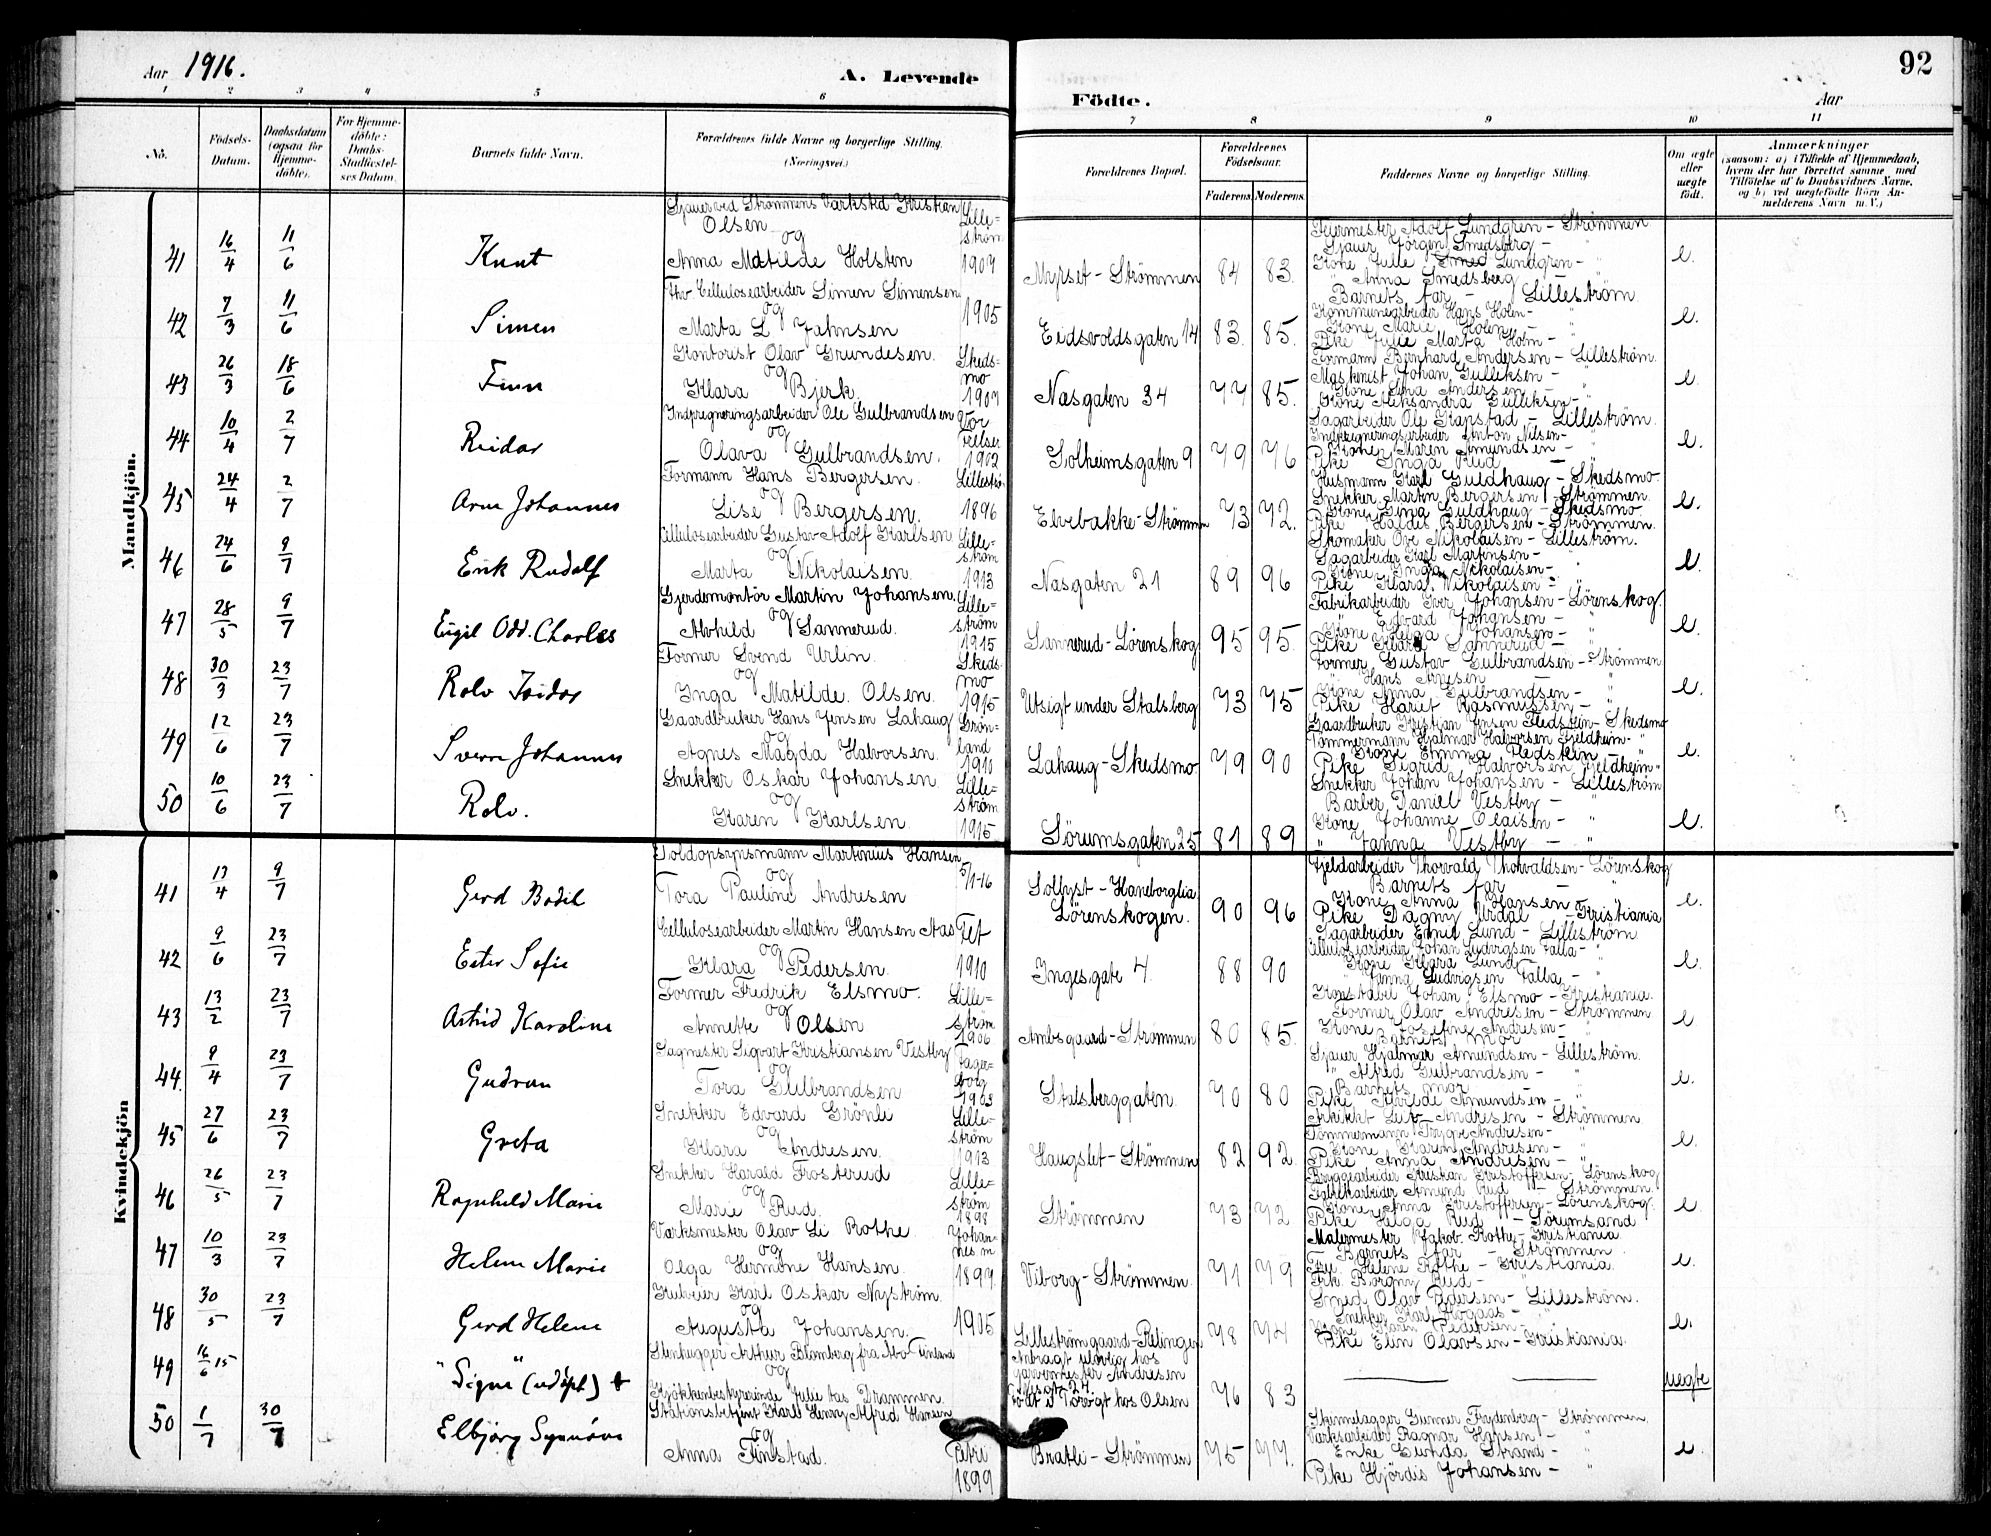 Aar 1916.
A. Levende
Födte.
Aar
92
1 2 3 4 5 6 7 8 9 10 11
No.
Födsels-Datum.
Daabsdatum (ogsaa for Hjemme-döbte).
For Hjemme-döbte: Daabs-Stadfæstel-ses Datum.
Barnets fulde Navn.
Forældrenes fulde Navne og borgerlige Stilling. (Næringsvei.)
Forældrenes Bopæl.
Forældrenes Födselsaar.
Faderens Moderens
Faddernes Navne og borgerlige Stilling.
Om ægte eller uægte födt.
Anmærkninger
(saasom: a) i Tilfælde af Hjemmedaab, hvem der har forrettet samme, med Tilföielse af to Daabsvidners Navne, og b) ved uægtefödte Börn Anmelderens Navn m. V.)
Mandkjön.
41 16/4 11/6 Knut
Sjauer ved Strömmens Værksted Kristian Olsen og Anna Matilde Holsten
Lilleström 1907
Myrset - Strömmen 84 83.
Feiermester Adolf Lundgren - Strömmen
Sjauer Jörgen Smedsberg - "
Kone Julie Lundgren - "
" Anna Smedsberg - "
Barnets far - Lilleström
e.
42 7/3 11/6 Simen
Fhv. Cellulosearbeider Simen Simensen og Marta L Jahnsen
1905
Eidsvoldsgaten 14 83. 85.
Kommunearbeider Hans Holen - "
Kone Marie Holen - "
Pike Julie Marta Holm -
e.
43 26/3 18/6 Finn
Kontorist Olav Grundesen og Klara Bjerk
Skedsmo 1907
Næsgaten 34 77 85.
Formann Bernhard Andersen - Lilleström.
Maskinist Johan Gulliksen - "
Kone Lina Andersen - "
Kone Aleksandra Gulliksen - "
e.
44 10/4 2/7 Reidar
Indpregneringsarbeider Ole Gulbrandsen og Olava Gulbrandsen.
Vor Frelser 1902
Solheimsgaten 9 79 76
Sagarbeider Ole Kanstad - Lilleström.
Indpregneringsarbeider Anton Nilsen - "
Kone Maren Amundsen - "
Pike Inga Rud - "
e.
45 24/4 2/7 Arne Johannes
Formann Hans Bergersen og Lise Bergersen.
Lilleström 1896
Elvebakke - Strömmen 73 72.
Husmann Karl Guldhaug - Skedsmo.
Snekker Martin Bergersen - Strömmen.
Kone Lina Guldhaug - Skedsmo.
Pike Haldis Bergersen - Strömmen.
e.
46 24/6 9/7 Erik Rudolf
Cellulosearbeider Gustav Adolf Karlsen og Marta Nikolaisen.
Lilleström 1913
Næsgaten 21 89 96
Skomaker Ove Nikolaisen - Lilleström.
Sagarbeider Karl Martinsen - "
Kone Inga Nikolaisen - "
Pike Klara Nikolaisen - "
e.
47 28/5 9/7 Eugil Odd. Charles
Gjerdemontör Martin Johansen. og Alvhild Sannerud.
Lilleström 1915
Sannerud - Lörenskog 95 95.
Fabrikarbeider Iver Johansen - Lörenskog.
" Edvard Johansen - "
Kone Helga Johansen - "
Pike Sannerud - "
e.
48 30/3 23/7 Rolv Reidar
Former Svend Urlin. og Inga Matilde Olsen.
Skedsmo 1915
Utsigt under Stalsberg 73 75
Former Gustav Gulbrandsen - Strömmen
" Hans Arnesen - "
Kone Anna Gulbrandsen - "
Pike Hariet Rasmussen - "
e.
49 12/6 23/7 Sverre Johannes
Gaardbruker Hans Jensen Lahaug og Agnes Magda Halvorsen
Grönland 1910
Lahaug - Skedsmo. 79 90
Gaardbruker Kristian Jensen Fledstein - Skedsmo
Tömmermann Hjalmar Halvorsen Fjeldheim - "
Kone Emma Fledstein - "
Pike Sigrid Halvorsen Fjeldheim "
e.
50 10/6 23/7 Rolv.
Snekker Oskar Johansen. og Karen Karlsen.
Lilleström 1915
Sörumsgaten 25 81 89
Snekker Johan Johansen - Lilleström
Barber Daniel Vestby - "
Kone Johanne Olaisen - "
" Janna Vestby - "
e.
Kvindekjön
41 17/4 9/7 Gerd Bodil
Toldopsynsmann Martinius Hansen og Tora Pauline Andresen
5/1-16
Solbyst - Haneborglia Lörenskogen. 90 96
Fjeldarbeider Thorvald Thorvaldsen - Lörenskog
Barnets far - "
Kone Anna Hansen - "
Pike Dagny Urdal - Kristiania
e.
42 9/6 23/7 Ester Sofie
Cellulosearbeider Martin Hansen Aas og Klara Pedersen.
Fet 1910
Ingesgate 4. 88 90
Sagarbeider Emil Lund - Lilleström
Cellulosearbeider Johan Ludvigsen Falla - "
Kone Klara Lund - "
" Janna Ludvigsen Falla - "
e.
43 13/2 23/7 Astrid Karoline
Former Fredrik Elsmo. og Annette Olsen
Lilleström 1906
Ambsgaard - Strömmen 80 85.
Konstabel Johan Elsmo - Kristiania.
Former Olav Andresen - Strömmen
Kone Josefine Andresen - "
Barnets mor - "
e
44. 9/4 23/7 Gudrun
Sagmester Sigvart Kristiansen Vestby og Tora Gulbrandsen
Fagerborg 1903
Stalsberggaten. 70 80
Sjauer Hjalmar Amundsen - Lilleström.
" Alfred Gulbrandsen - "
Barnets mor - "
Pike Amundsen - "
e.
45 27/6 23/7 Greta
Snekker Edvard Grönli og Klara Andresen.
Lilleström 1913
Haugslet - Strömmen 82 92
Arkitekt Leif Andresen - Strömmen
Tömmermann Trygve Andresen - "
Kone Karen Andresen - "
Pike Anna Andresen - "
e.
46 26/5 23/7 Ragnhild Marie
Snekker Harald Frosterud og Marie Rud.
Lilleström 1898
Strömmen 73 72
Bryggearbeider Kristian Kristoffersen - Lörenskog
Fabrikarbeider Amund Rud - Strömmen.
Kone Anna Kristoffersen - Lörenskog.
Pike Helga Rud - Sörumsand
e
47 10/3 23/7 Helene Marie
Værksmester Olav Li Rothe og Olga Hermine Hansen.
Johannes m 1899.
Viborg - Strömmen. 71 79
Malermester Jakob Rothe - Kristiania
Barnets far - Strömmen.
Fru Helene Rothe - Kristiania.
Frk Borgny Rud - "
e.
48 30/5 23/7 Gerd Helene
Karl Oskar Nyström. og Augusta Johansen.
1905
Lilleströmgaard - Rælingen 78 74
Smed Olav Pedersen - Lilleström.
Snekker Karl Hogaas - "
Kone Karen Pedersen - "
Pike Elin Olavsen - Kristiania.
e.
49 16/6 15 "Signe" (udöpt) +
Stenhugger Arthur Blomberg fra Åbo Finland og Kjökkenbestyrerinde Julie Aas Drammen.
Anbragt ulovlig hos garvermester Andresen
Født i Torvgt hos Olsen
76 83
uægte
50 1/7 30/7 Elbjörg Synnöve
Stationsbetjent Karl Henry Alfred Hansen og Anna Finstad.
Petri 1899
Bratli - Strömmen 75 77.
Skinnelægger Gunner Frydenberg - Strömmen
Værksarbeider Ragnar Hansen - "
Enke Gunda Strand - "
Pike Hjördis Johansen - "
e